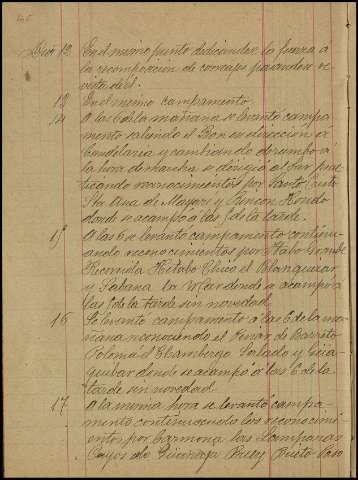 Dia 12 En el mismo punto dedicandose la fuerza a
la recomposicion de correaje pasandose re
vista de
13 En el mismo campamento.
14 A las 6 de la mañana se levantó campa
mento saliendo el Bon en direccion a
Candelaria y cambiando de rumbo a
la hora de marcha se dirigió al Sur prac
ticando reconocimientos por Santo Cristo
Sta. Ana de Mayari y Rincon Hondo
donde se acampo a las 5 de la tarde.
15 A las 6 se levantó campamento continu
ando reconocimientos por Hato Grande
Chico el Blanquizar
y Sabana la Mar donde se acampó a
las 5 de la tarde sin novedad.
16 Se levantó campamento a las 6 de la ma
ñana reconociendo el Pinar de Barreto
Loma del Chambergo Soplado y Guia
donde se acampó a las 6 de la
tarde sin novedad.
17 A la misma hora se levantó campa
mento continuando los reconocimi
entos por Carmona las Campanas
Cayos de Prieto Paso